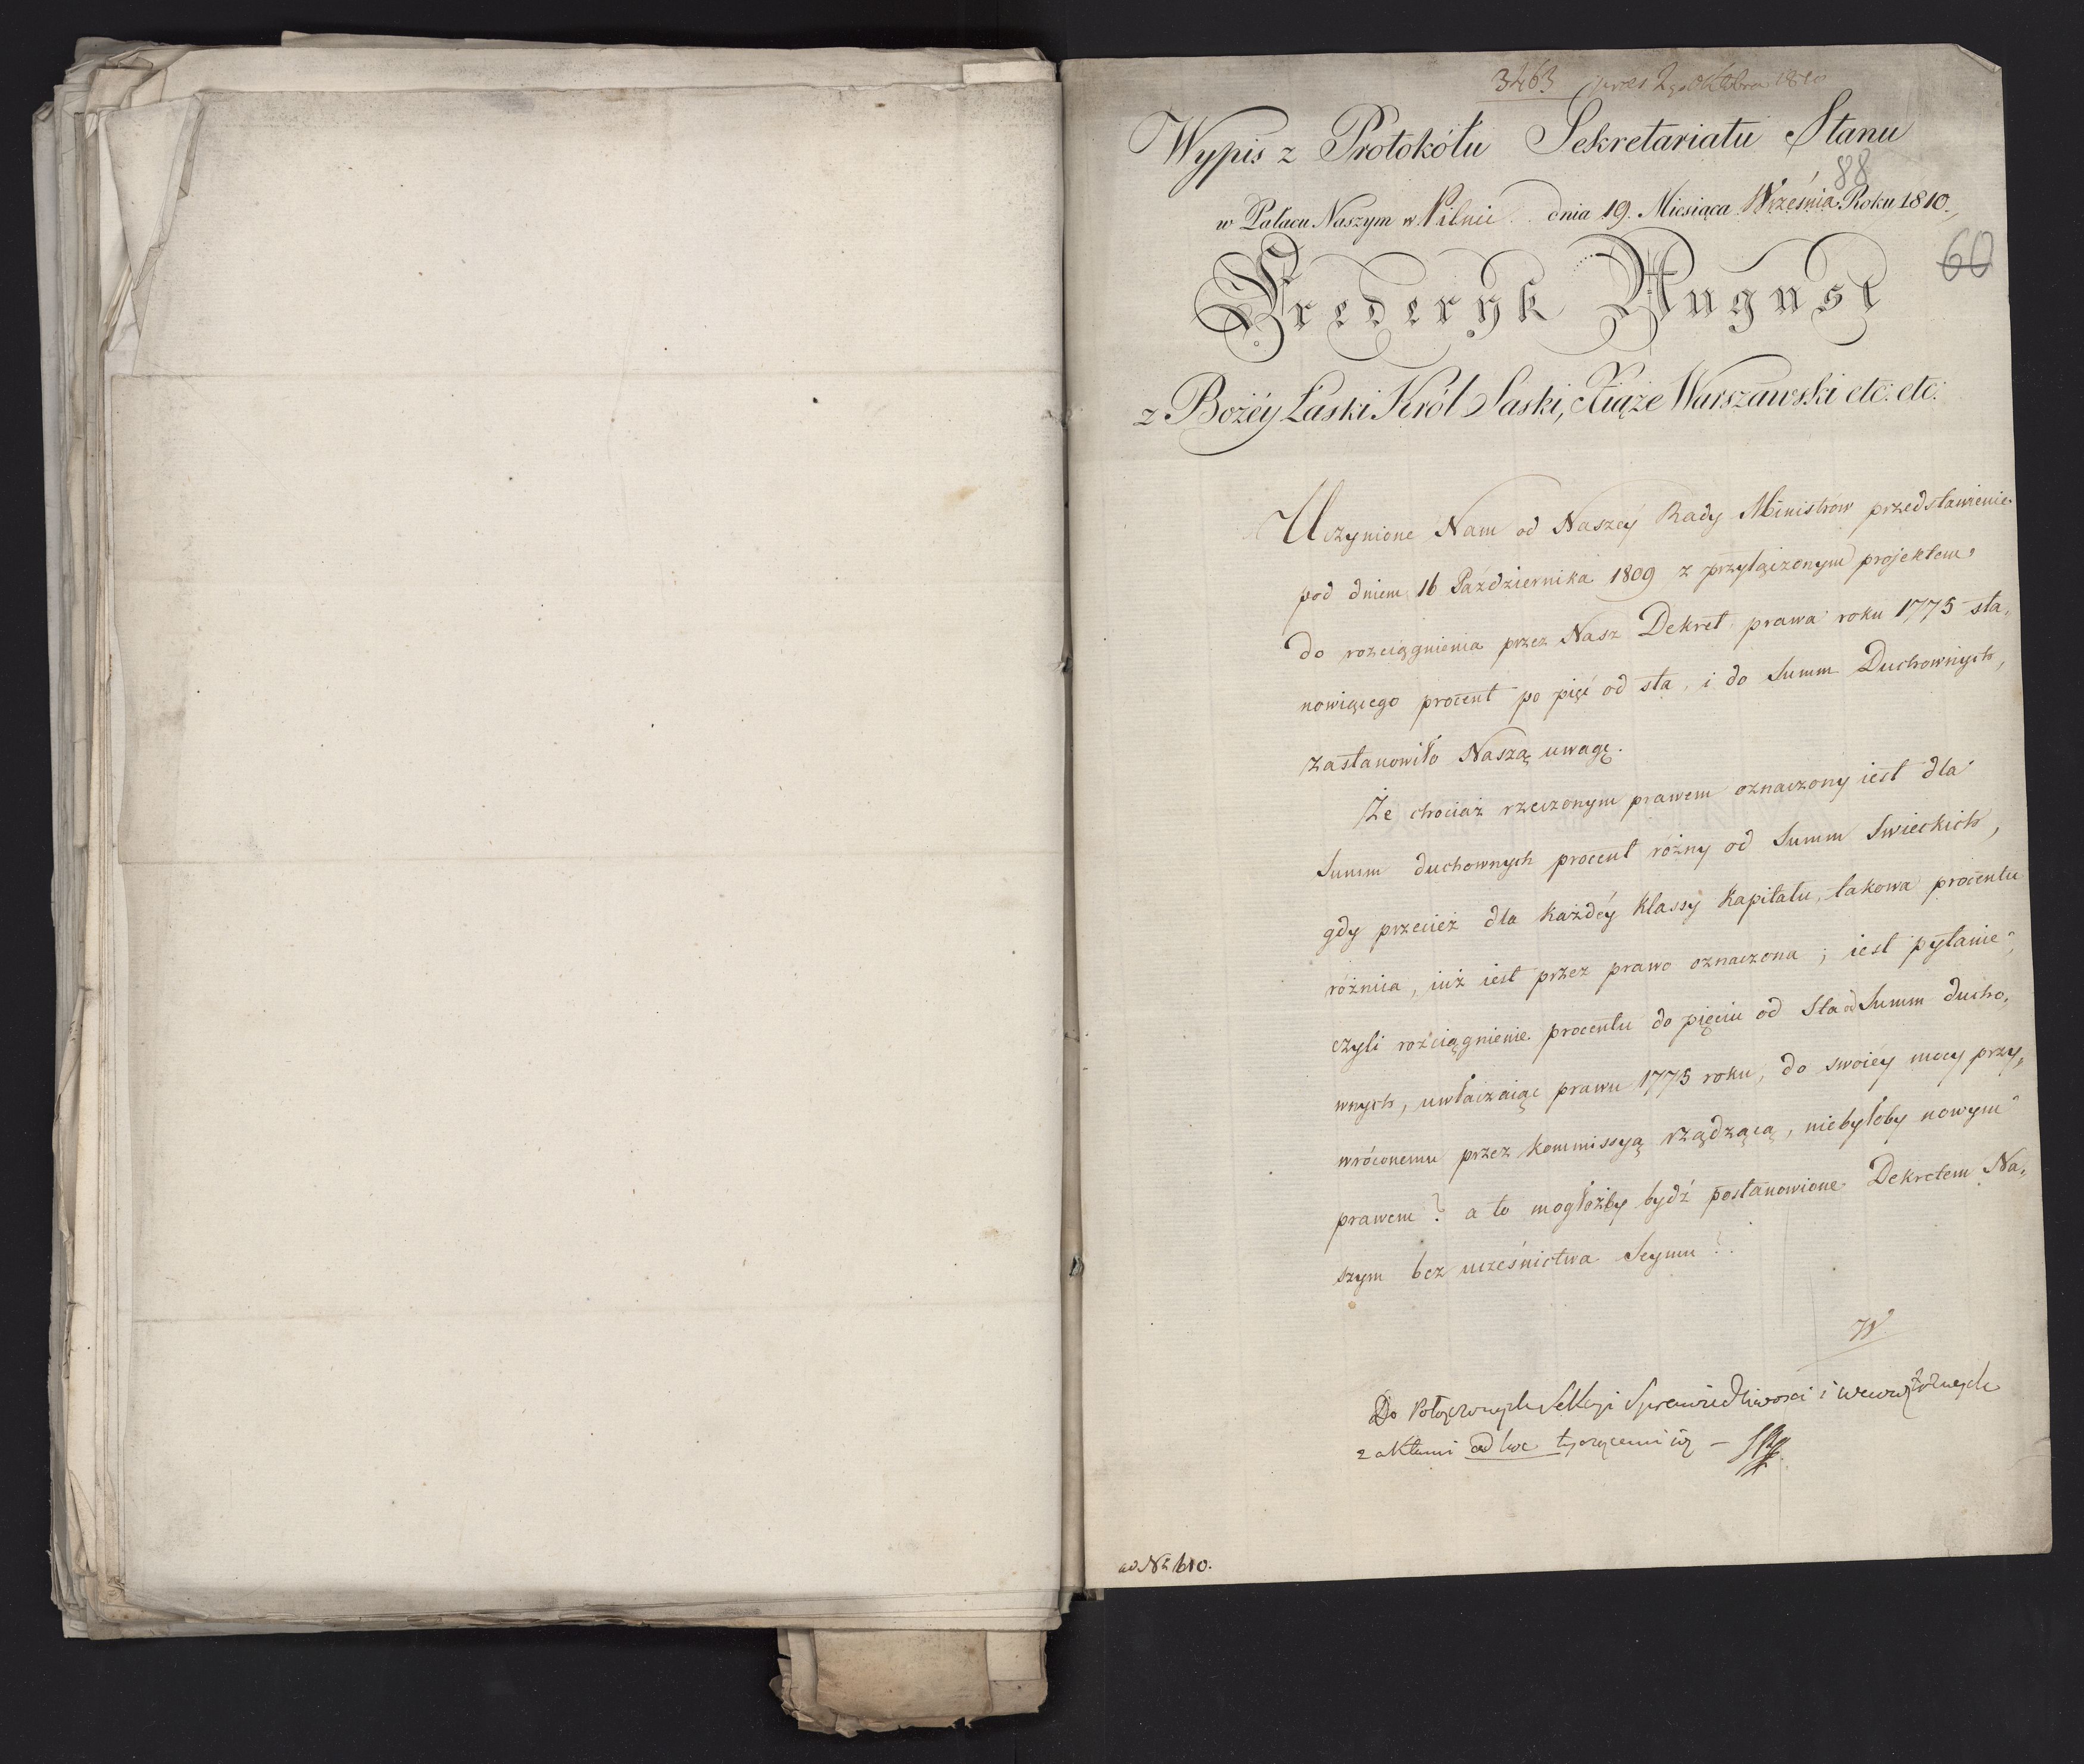 3463 praes 2go Octobra 1810
Wypis z Protokółu Sekretariatu Stanu
88
w Pałacu Naszym w Pilnic dnia 19. Miesiąca Września Roku 1810.
60
Frederyk August
z Bożéy Łaski Król Saski, Xiąże Warszawski etc: etc:
Uczynione Nam od Naszéy Rady Ministrów przedstawienie
pod dniem 16 Października 1809 z przyłączonym projektem
do rozciągnienia przez Nasz Dekret prawa roku 1775 sta„
nowiącego procent po pięć od sta, i do Summ Duchownych,
zastanowiło Naszą uwagę.
Że chociaż rzeczonym prawem oznaczony iest dla
Summ duchownych procent różny od Summ Swieckich,
gdy przecież dla każdéy klassy kapitału, takowa procentu
różnica, iuż iest przez prawo oznaczona; iest pytanie,
czyli rościągnienie procentu do pięciu od Sta od Summ ducho„
wnych, uwłaczaiąc prawu 1775 roku, do swoiéy mocy przy„
wróconemu przez kommissyą rządzącą, niebyłoby nowym
prawem? a to mogłożby bydź postanowione Dekretem Na„
szym bez ucześnictwa Seymu?
W
Do Połączonych Sekcji Sprawiedliwości i Wewnętrznych
z aktami ad hoc tyczącemi się –
ad Nr 610.